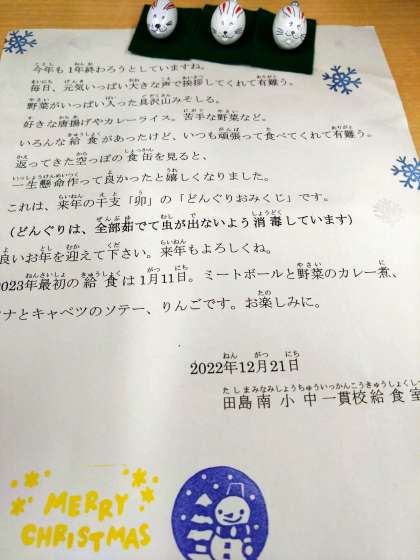 今年も1年終わろうとしていますね。
毎日、元気いっぱい大きな声で挨拶してくれて有難う。
野菜がいっぱい入った具沢山みそしる。
好きな唐揚げやカレーライス。苦手な野菜など。
いろんな給食があったけど、いつも頑張って食べてくれて有難う。
返ってきた空っぽの食缶を見ると、
一生懸命作って良かったと嬉しくなりました。
これは、来年の干支「卯」の「どんぐりおみくじ」です。
(どんぐりは、全部茹でて虫が出ないよう消毒しています)
良いお年を迎えて下さい。来年もよろしくね。
2023年最初の給食は1月11日。ミートボールと野菜のカレー煮、
ナとキャベツのソテー、りんごです。お楽しみに。
2022年12月21日
田島南小中一貫校給食室
MERRY
CHRISTMAS